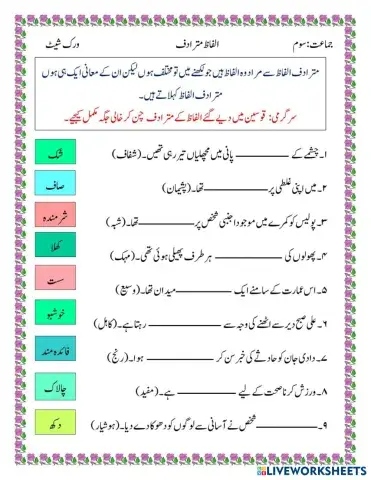 جماعت: سوم الفاظ مترادف ورک شیٹ
مترادف الفاظ سے مراد وہ الفاظ ہیں جو لکھنے میں تو مختلف ہوں لیکن ان کے معانی ایک ہی ہوں
مترادف الفاظ کہلاتے ہیں۔
سرگرمی: قوسین میں دیے گئے الفاظ کے مترادف چن کر خالی جگہ مکمل کیجیے۔
۱۔ چشمے کے ________ پانی میں مچھلیاں تیر رہی تھیں۔ (شفاف)
شک
۲۔ میں اپنی غلطی پر ________ تھا۔ (پشیمان)
صاف
۳۔ پولیس کو کمرے میں موجود اجنبی شخص پر ________ تھا۔ (شبہ)
شرمندہ
۴۔ پھولوں کی ________ ہر طرف پھیلی ہوئی تھی۔ (مہک)
کھلا
۵۔ اس عمارت کے سامنے ایک ________ میدان تھا۔ (وسیع)
سست
۶۔ علی صبح دیر سے اٹھنے کی وجہ سے ________ رہتا ہے۔ (کاہل)
خوشبو
۷۔ دادی جان کو حادثے کی خبر سن کر ________ ہوا۔ (رنج)
فائدہ مند
۸۔ ورزش کرنا صحت کے لیے ________ ہے۔ (مفید)
چالاک
۹۔ ________ شخص نے آسانی سے لوگوں کو دھوکا دے دیا۔ (ہوشیار)
دکھ
LIVEWORKSHEETS